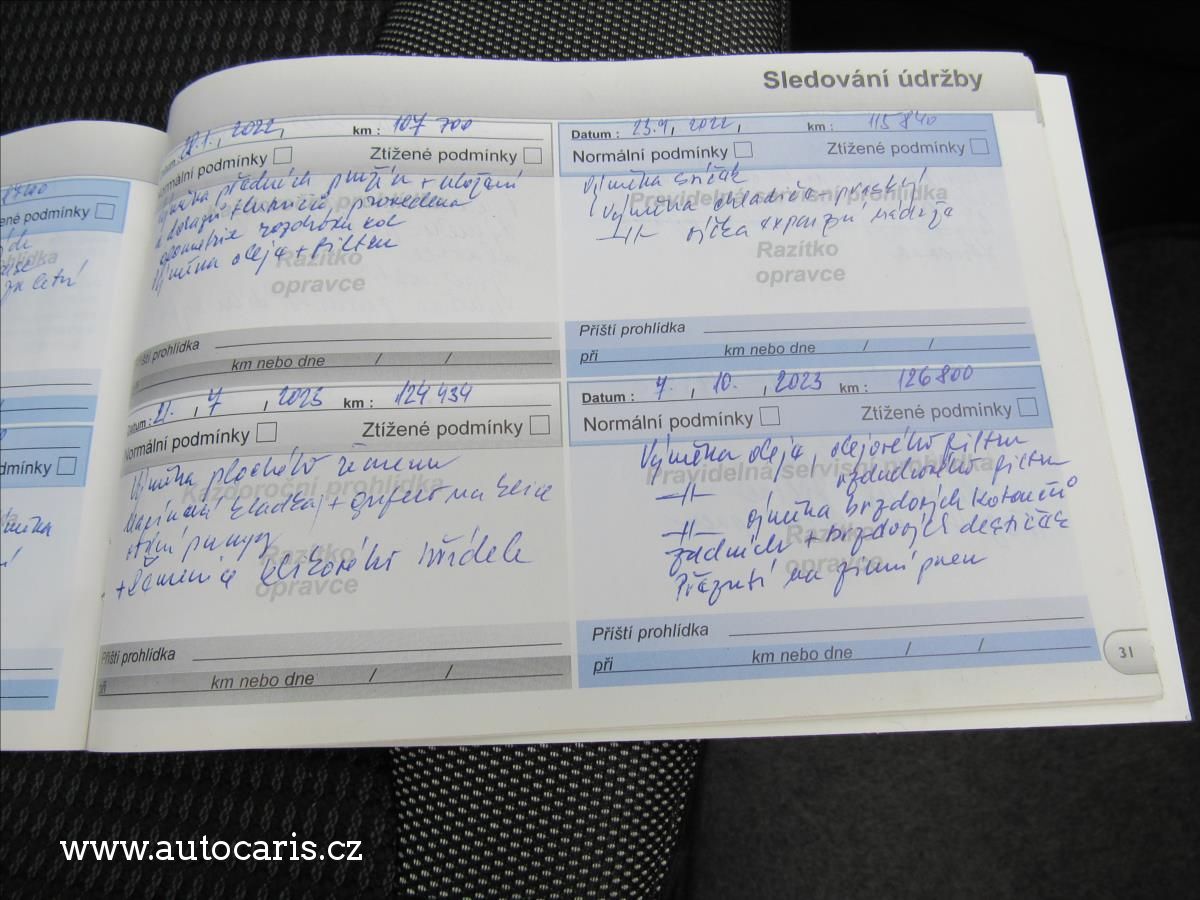 Sledování údržby
1. 2022, km : 107 700
Normální podmínky Ztížené podmínky
Výměna předních pružin + uložení
provedena
geometrie rozdvoru kol
Výměna oleje + filtru
Razítko
opravce
Příští prohlídka
km nebo dne / /
Datum : 21. , 7 , 2023 km : 124 434
Normální podmínky Ztížené podmínky
Výměna plochého řemenu
Každoroční prohlídka
Napínací kladka +
vodní pumpy
Razítko
+ řemenice klikového hřídele
opravce
Příští prohlídka
při km nebo dne / /
Datum : 23.9, 2022, km : 115 840
Normální podmínky Ztížené podmínky
Výměna svíček
Pravidelná servisní prohlídka
Výměna chladiče - prasklý
víčka expanzní nádrže
Razítko
opravce
Příští prohlídka
při km nebo dne / /
Datum : 7. 10. , 2023 km : 126 800
Normální podmínky Ztížené podmínky
Výměna oleje, olejového filtru
Pravidelná servisní prohlídka
vzduchového filtru
výměna brzdových kotoučů
zadních + brzdových destiček
Razítko
opravce
Přezutí na zimní pneu
Příští prohlídka
při km nebo dne / /
31
podmínky
za letní
dmínky
www.autocaris.cz